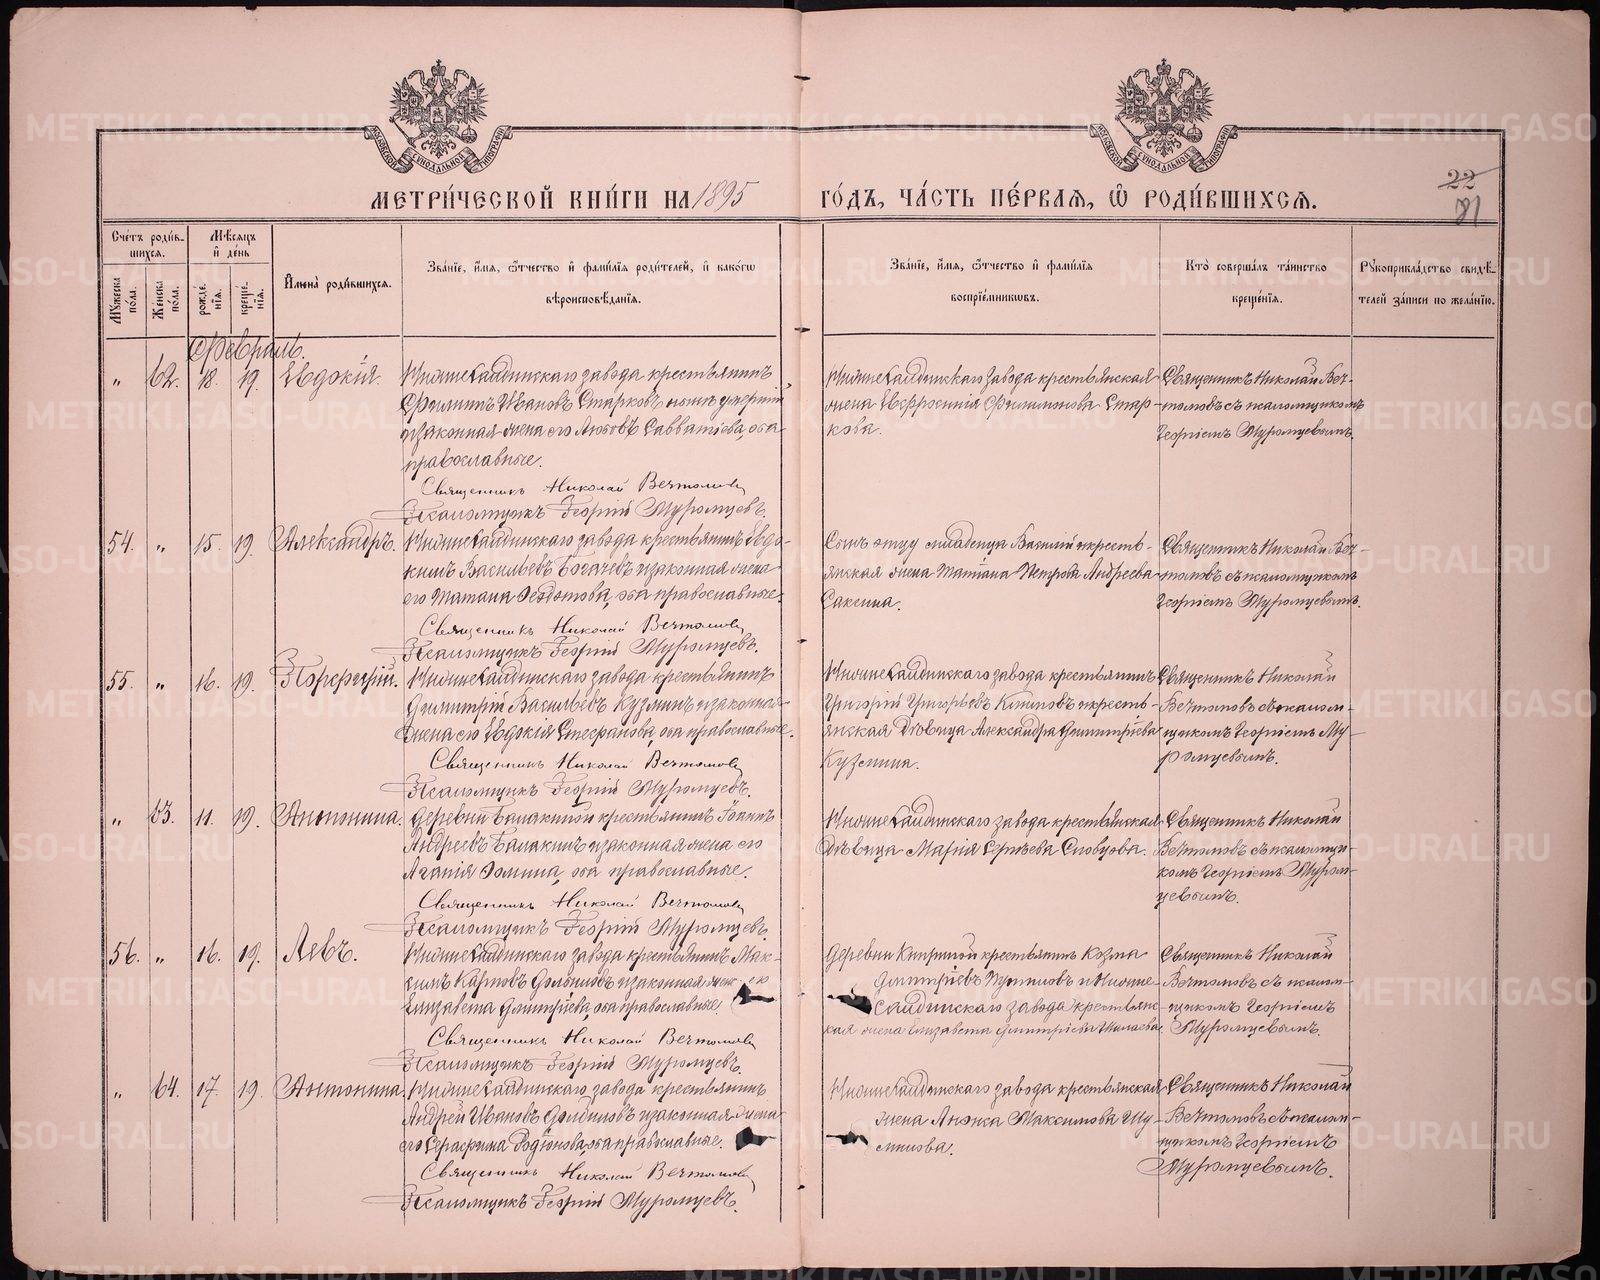 МЕТРИ́ЧЕСКОЙ КНИ́ГИ НА 1895 ГО́ДЪ, ЧА́СТЬ ПЕ́РВАЯ, Ѽ РОДИ́ВШИХСЯ.
22
81
Сче́тъ роди́в-
шихся.
Мѣ́сяцъ
и҆ де́нь
Мꙋ́жеска
по́ла.
Же́нска
по́ла.
рожде́-
нїѧ.
креще́-
нїѧ.
И҆мена̀ роди́вшихся.
Зва́нїе, и҆́мѧ, ѻ҆́тчество и҆ фами́лїѧ роди́телей, и҆ како́гѡ
вѣроисповѣ́данїѧ.
Зва́нїе, и҆́мѧ, ѻ҆́тчество и҆ фами́лїѧ
воспрїе́мникѡвъ.
Кто̀ соверша́лъ та́инство
креще́нїѧ.
Рꙋкоприкла́дство свидѣ́-
телей за́писи по жела́нїю.
Февраль.
" 62. 18. 19. Евдокія.
Нижнесалдинскаго завода крестьянинъ
Филиппъ Ивановъ Старковъ нынѣ умершій
и законная жена его Любовь Савватіева, оба
православные.
Священникъ Николай Вечтомовъ
Псаломщикъ Георгій Муромцевъ.
Нижнесалдинскаго завода крестьянская
жена Евфросинія Филиппова Стар-
кова.
Священникъ Николай Веч-
томовъ съ псаломщикомъ
Георгіемъ Муромцевымъ.
54. " 15. 19. Александръ.
Нижнесалдинскаго завода крестьянинъ Евдо-
кимъ Васильевъ Богачевъ и законная жена
его Татіана Федотова, оба православные.
Священникъ Николай Вечтомовъ
Псаломщикъ Георгій Муромцевъ.
Сынъ отцу младенца Василій и кресть-
янская жена Татіана Петрова Андреева
Священникъ Николай Веч-
томовъ съ псаломщикомъ
Георгіемъ Муромцевымъ.
55. " 16. 19. Порфирій.
Нижнесалдинскаго завода крестьянинъ
Димитрій Васильевъ Кузминъ и законная
жена его Евдокія Стефанова, оба православные.
Священникъ Николай Вечтомовъ
Псаломщикъ Георгій Муромцевъ.
Нижнесалдинскаго завода крестьянинъ
Григорій Григорьевъ и кресть-
янская дѣвица Александра Димитріева
Кузмина.
Священникъ Николай
Вечтомовъ съ псалом-
щикомъ Георгіемъ Му-
ромцевымъ.
" 63. 11. 19. Антонина.
Деревни Балакиной крестьянинъ Іоаннъ
Андреевъ Балакинъ и законная жена его
Агапія Фомина, оба православные.
Священникъ Николай Вечтомовъ
Псаломщикъ Георгій Муромцевъ.
Нижнесалдинскаго завода крестьянская
дѣвица Марія Сергѣева Словцова.
Священникъ Николай
Вечтомовъ съ псаломщи-
комъ Георгіемъ Муром-
цевымъ.
56. " 16. 19. Левъ.
Нижнесалдинскаго завода крестьянинъ Мак-
симъ Карповъ и законная жена его
Елизавета Димитріева, оба православные.
Священникъ Николай Вечтомовъ
Псаломщикъ Георгій Муромцевъ.
Деревни крестьянинъ Козма
Дмитріевъ и Нижне-
Салдинскаго завода крестьянс-
кая жена Елизавета Дмитріева
Священникъ Николай
Вечтомовъ съ псалом-
щикомъ Георгіемъ
Муромцевымъ.
" 64. 17. 19. Антонина.
Нижнесалдинскаго завода крестьянинъ
Андрей Ивановъ и законная жена
его Серафима Родіонова, оба православные.
Священникъ Николай Вечтомовъ
Псаломщикъ Георгій Муромцевъ.
Нижнесалдинскаго завода крестьянская
жена Максимова
Священникъ Николай
Вечтомовъ съ псалом-
щикомъ Георгіемъ
Муромцевымъ.
METRIKI.GASO-URAL.RU